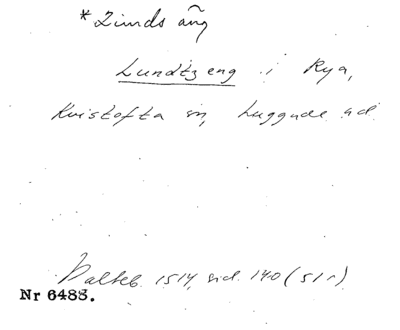 *Lunds äng
Lundtz eng i Rya,
Kvistofta sn, Luggude hd
Dalteb. 1514, sid. 140 (51r)
Nr 6483.